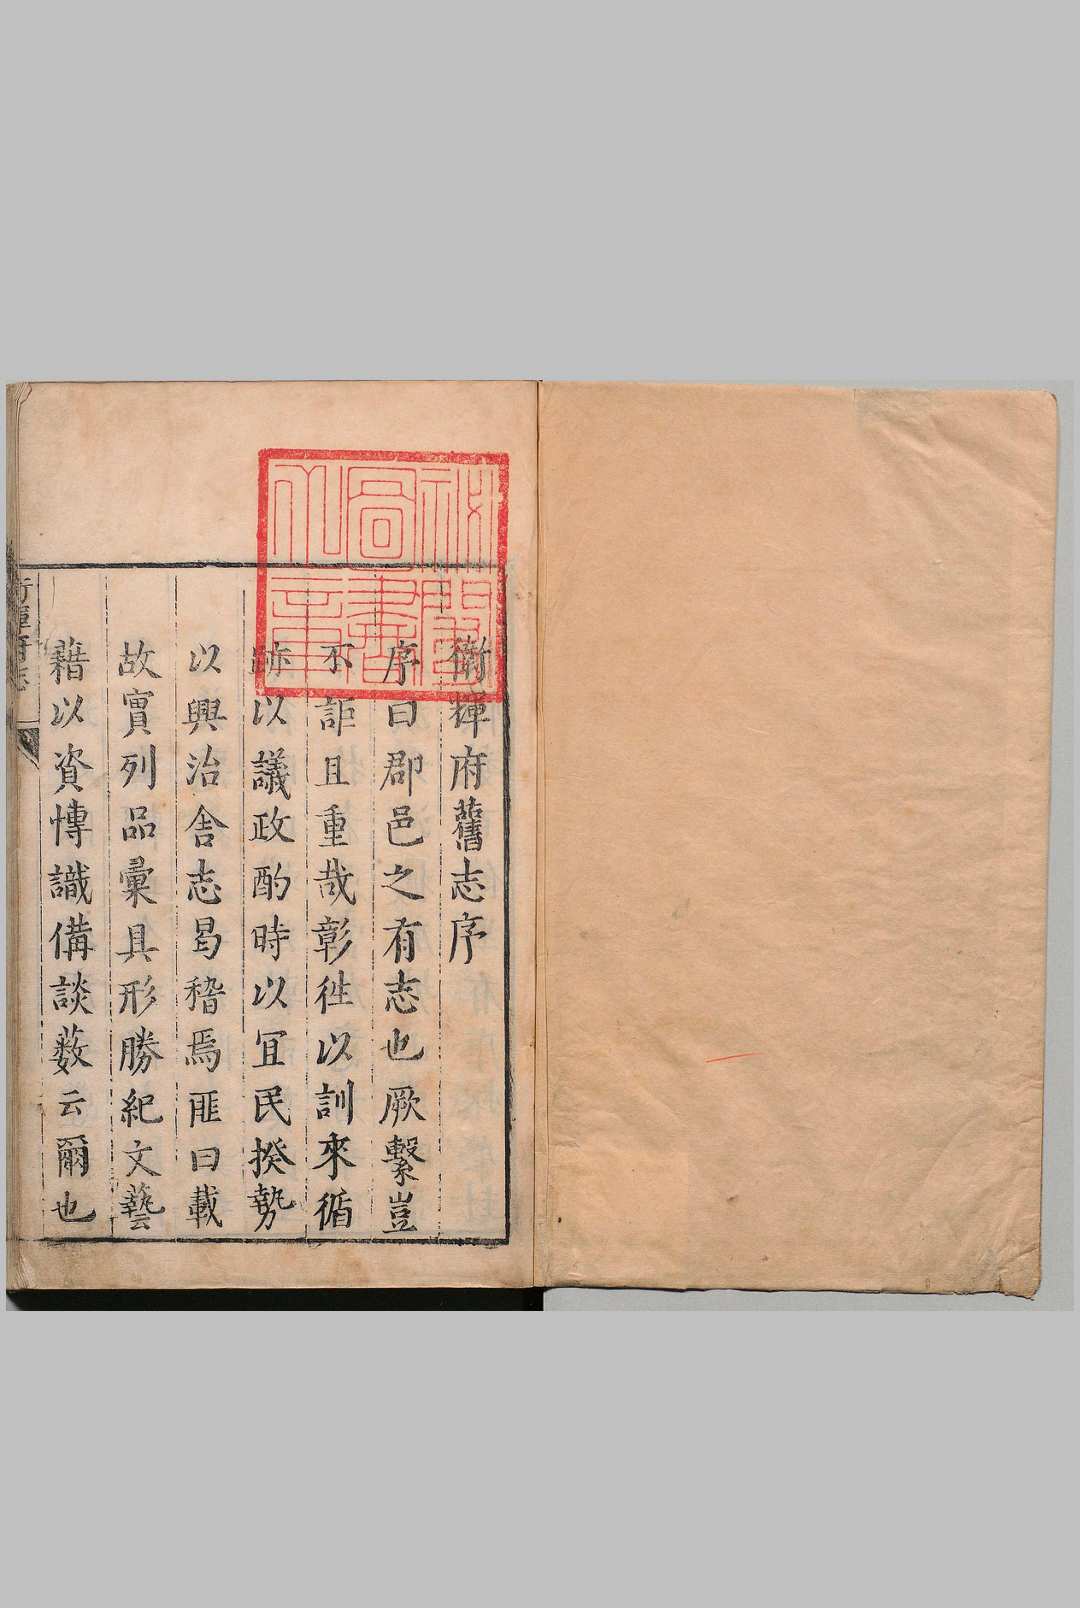 衛輝府舊志序
序曰郡邑之有志也厥繫豈
不詎且重哉彰徃以訓來循
跡以議政酌時以冝民揆勢
以興治舍志曷稽焉匪曰載
故實列品彙具形勝紀文藝
藉以資愽識備談薮云爾也
衛輝府志
秘閣
圖書
之章